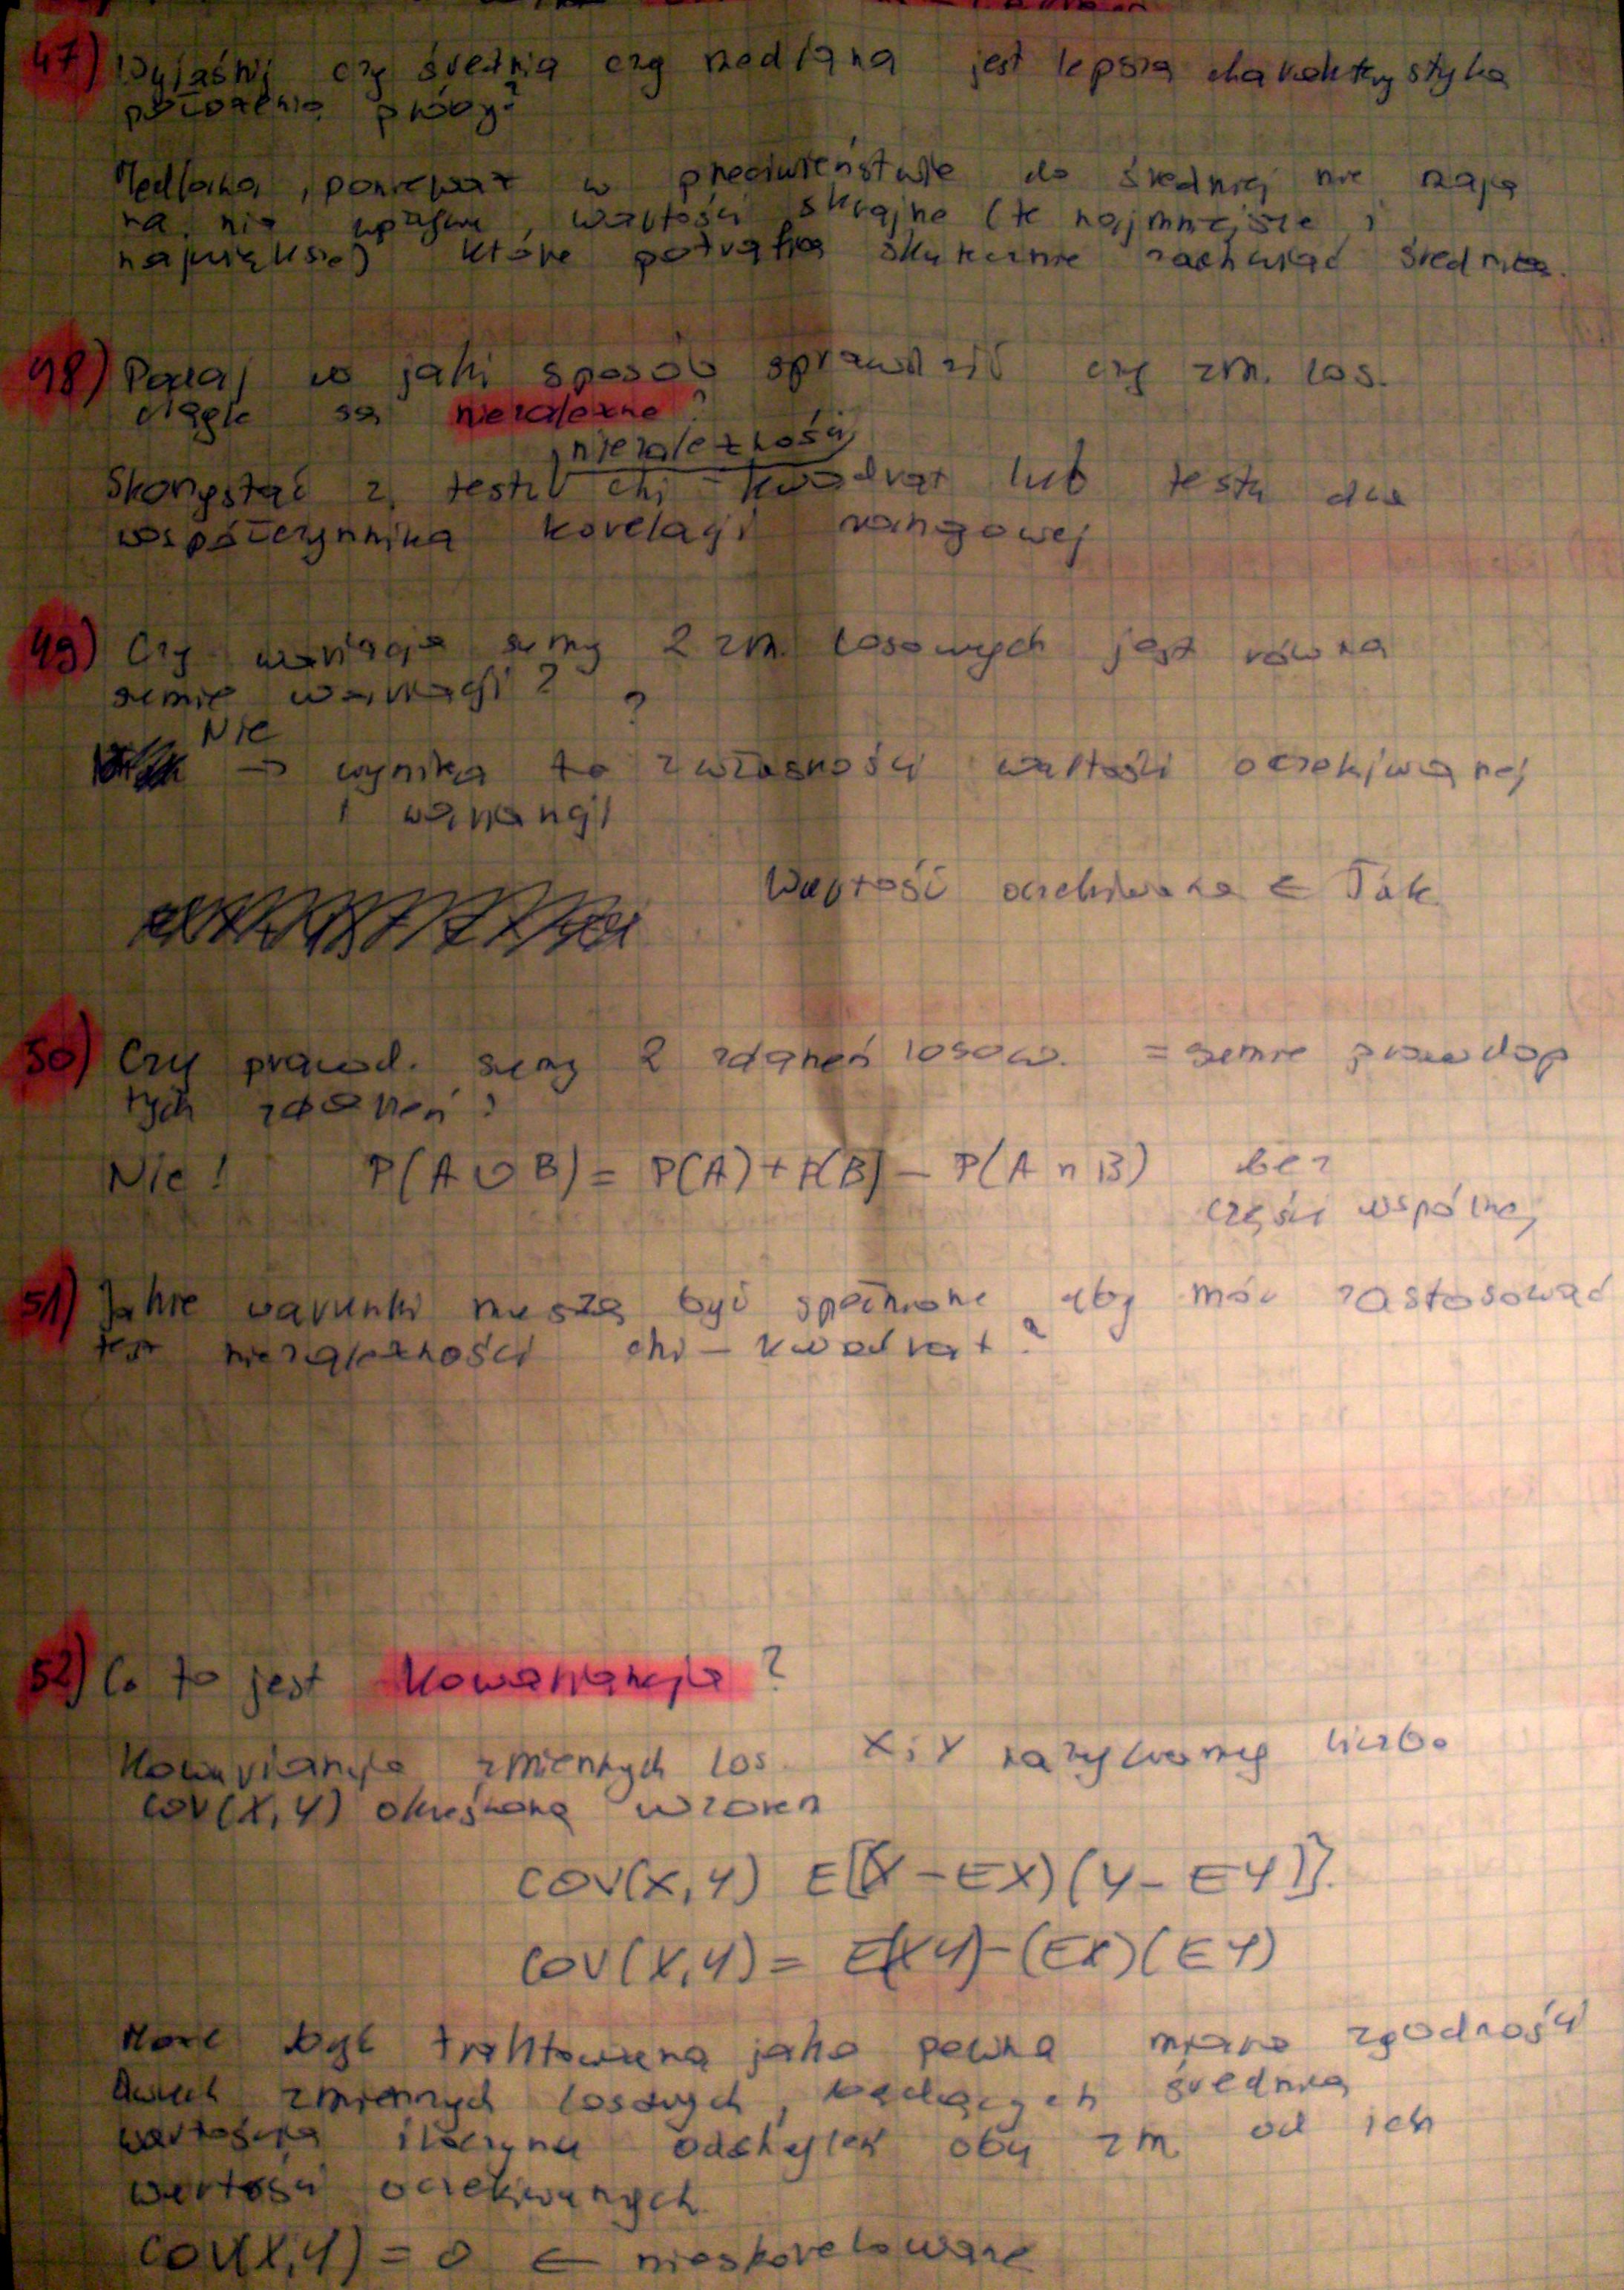 47) Wyjaśnij czy średnia czy mediana jest lepszą charakterystyką
położenia próby?
Mediana, ponieważ w przeciwieństwie do średniej nie mają
na nią wpływu, wartości skrajne (te najmniejsze i
największe) które potrafią skutecznie zachwiać średnią.
48) Podaj w jaki sposób sprawdzić czy zm. los.
ciągłe są niezależne?
niezależności
Skorzystać z testu chi-kwadrat lub testu dla
współczynnika korelacji rangowej
49) Czy wariacja sumy 2 zm. losowych jest równa
sumie wariacji?
?
Nie
→ wynika to z własności wartości oczekiwanej
i wariancji
Wartość oczekiwana ← Tak
50) Czy prawd. sumy 2 zdarzeń losow. = sumie prawdop
tych zdarzeń?
Nie! P(A ∪ B) = P(A) + P(B) - P(A ∩ B) bez
części wspólnej
51) Jakie warunki muszą być spełnione aby móc zastosować
test niezależności chi-kwadrat?
52) Co to jest kowariancja?
Kowariancją zmiennych los. X i Y nazywamy liczbę
cov(X,Y) określoną wzorem
cov(X,Y) E[(X-EX)(Y-EY)].
cov(X,Y) = E(XY)-(EX)(EY)
Może być traktowana jako pewna miara zgodności
dwóch zmiennych losowych, będących średnią
wartością iloczynu odchyleń obu zm. od ich
wartości oczekiwanych
cov(X,Y) = 0 ← nieskorelowane